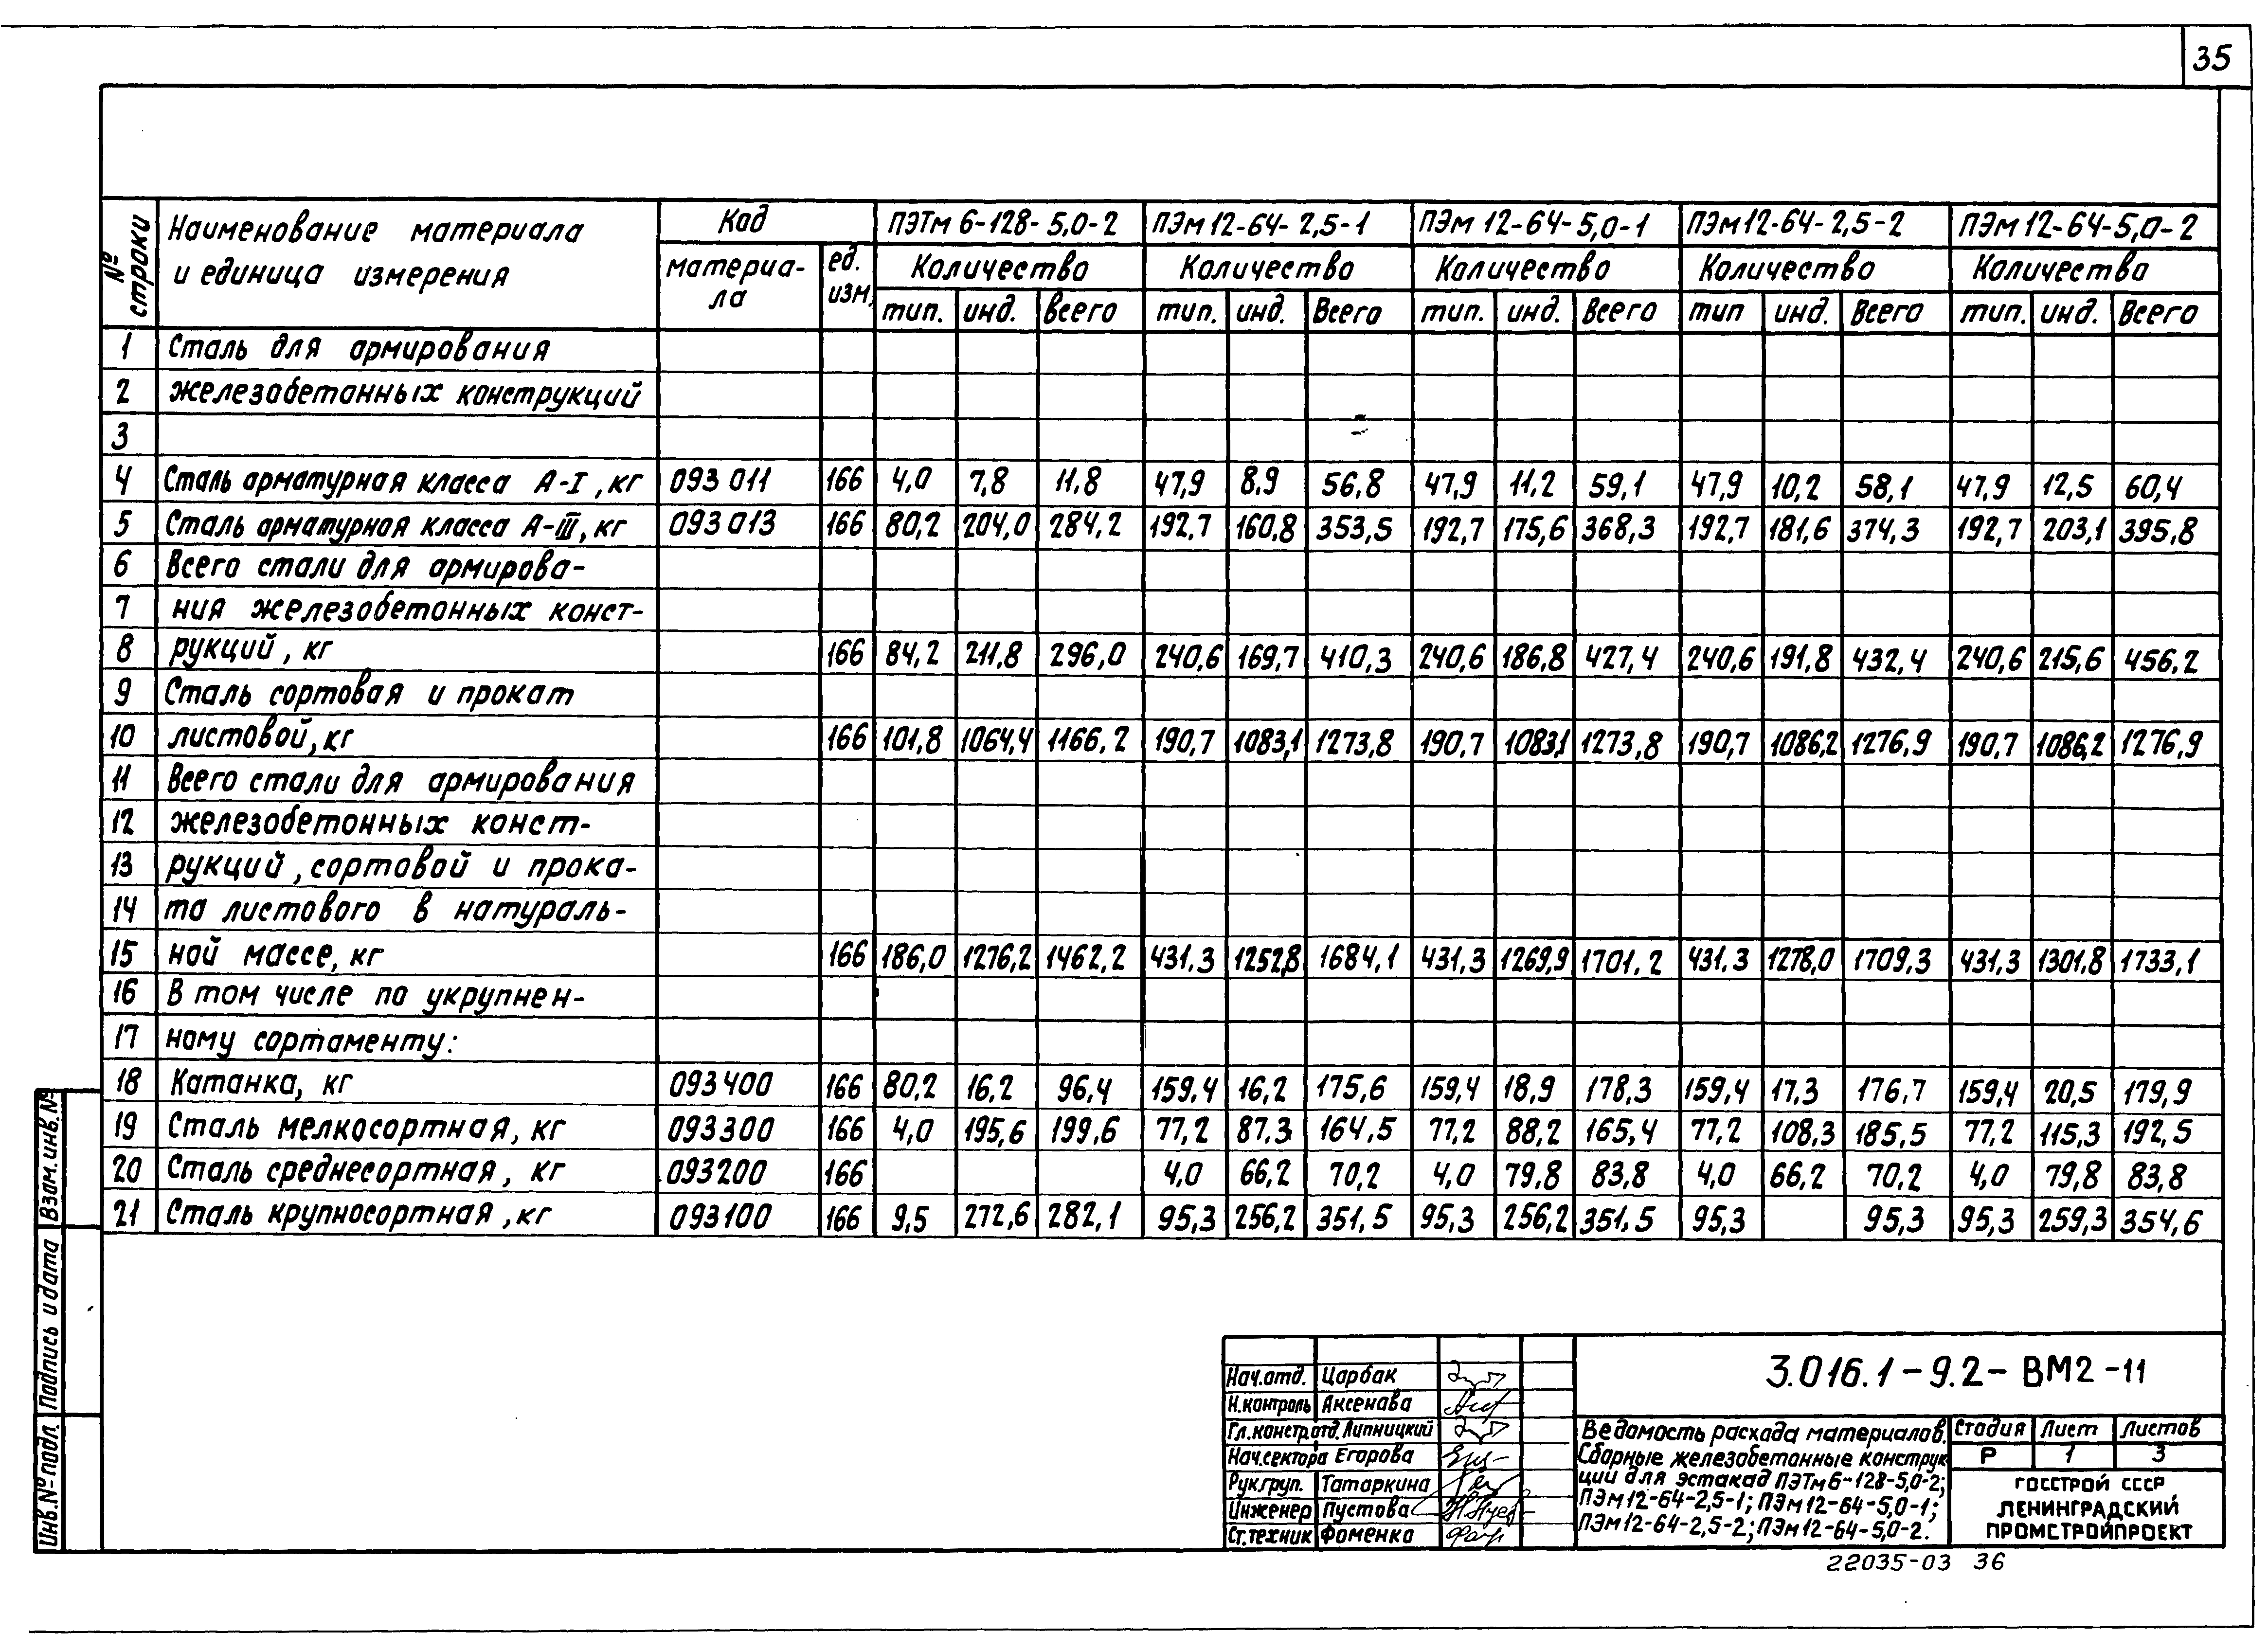 35
№ строки
Наименование материала и единица измерения
Код
ПЭТм 6-128-5,0-2 ПЭм 12-64-2,5-1 ПЭм 12-64-5,0-1 ПЭм12-64-2,5-2 ПЭм 12-64-5,0-2
материа-ла
ед. изм.
Количество Количество Количество Количество Количество
тип. инд. всего тип. инд. Всего тип. инд. Всего тип инд. Всего тип. инд. Всего
1 Сталь для армирования
2 железобетонных конструкций
3
4 Сталь арматурная класса А-I, кг 093 011 166 4,0 7,8 11,8 47,9 8,9 56,8 47,9 11,2 59,1 47,9 10,2 58,1 47,9 12,5 60,4
5 Сталь арматурная класса А-III, кг 093 013 166 80,2 204,0 284,2 192,7 160,8 353,5 192,7 175,6 368,3 192,7 181,6 374,3 192,7 203,1 395,8
6 Всего стали для армирова-
7 ния железобетонных конст-
8 рукций, кг 166 84,2 211,8 296,0 240,6 169,7 410,3 240,6 186,8 427,4 240,6 191,8 432,4 240,6 215,6 456,2
9 Сталь сортовая и прокат
10 листовой, кг 166 101,8 1064,4 1166,2 190,7 1083,1 1273,8 190,7 1083,1 1273,8 190,7 1086,2 1276,9 190,7 1086,2 1276,9
11 Всего стали для армирования
12 железобетонных конст-
13 рукций, сортовой и прока-
14 та листового в натураль-
15 ной массе, кг 166 186,0 1276,2 1462,2 431.3 1252,8 1684,1 431,3 1269,9 1701,2 431.3 1278,0 1709,3 431,3 1301,8 1733,1
16 В том числе по укрупнен-
17 ному сортаменту:
18 Катанка, кг 093400 166 80,2 16,2 96,4 159,4 16,2 175,6 159,4 18,9 178,3 159,4 17.3 176,7 159,4 20,5 179,9
19 Сталь мелкосортная, кг 093300 166 4,0 195,6 199,6 77,2 87.3 164,5 77,2 88,2 165,4 77,2 108,3 185,5 77,2 115,3 192,5
20 Сталь среднесортная, кг 093200 166 4,0 66,2 70,2 4,0 79,8 83,8 4,0 66,2 70,2 4,0 79,8 83,8
21 Сталь крупносортная, кг 093100 166 9,5 272,6 282,1 95,3 256,2 351,5 95,3 256,2 351,5 95,3 95,3 95,3 259,3 354,6
Взам. инв. №
Подпись и дата
Инв. № подл.
Нач.отд. Царбак
Н.контроль Аксенова
Гл.констр.отд. Липницкий
Нач.сектора Егорова
Рук.груп. Татаркина
Инженер Пустова
Ст.техник Фоменко
3.016.1-9.2-ВМ2-11
Ведомость расхода материалов.
Сборные железобетонные конструк
ции для эстакад ПЭТм6-128-5,0-2;
ПЭм12-64-2,5-1; ПЭм12-64-5,0-1;
ПЭм12-64-2,5-2; ПЭм12-64-5,0-2.
Стадия Лист Листов
Р 1 3
ГОССТРОЙ СССР
ЛЕНИНГРАДСКИЙ
ПРОМСТРОЙПРОЕКТ
22035-03 36